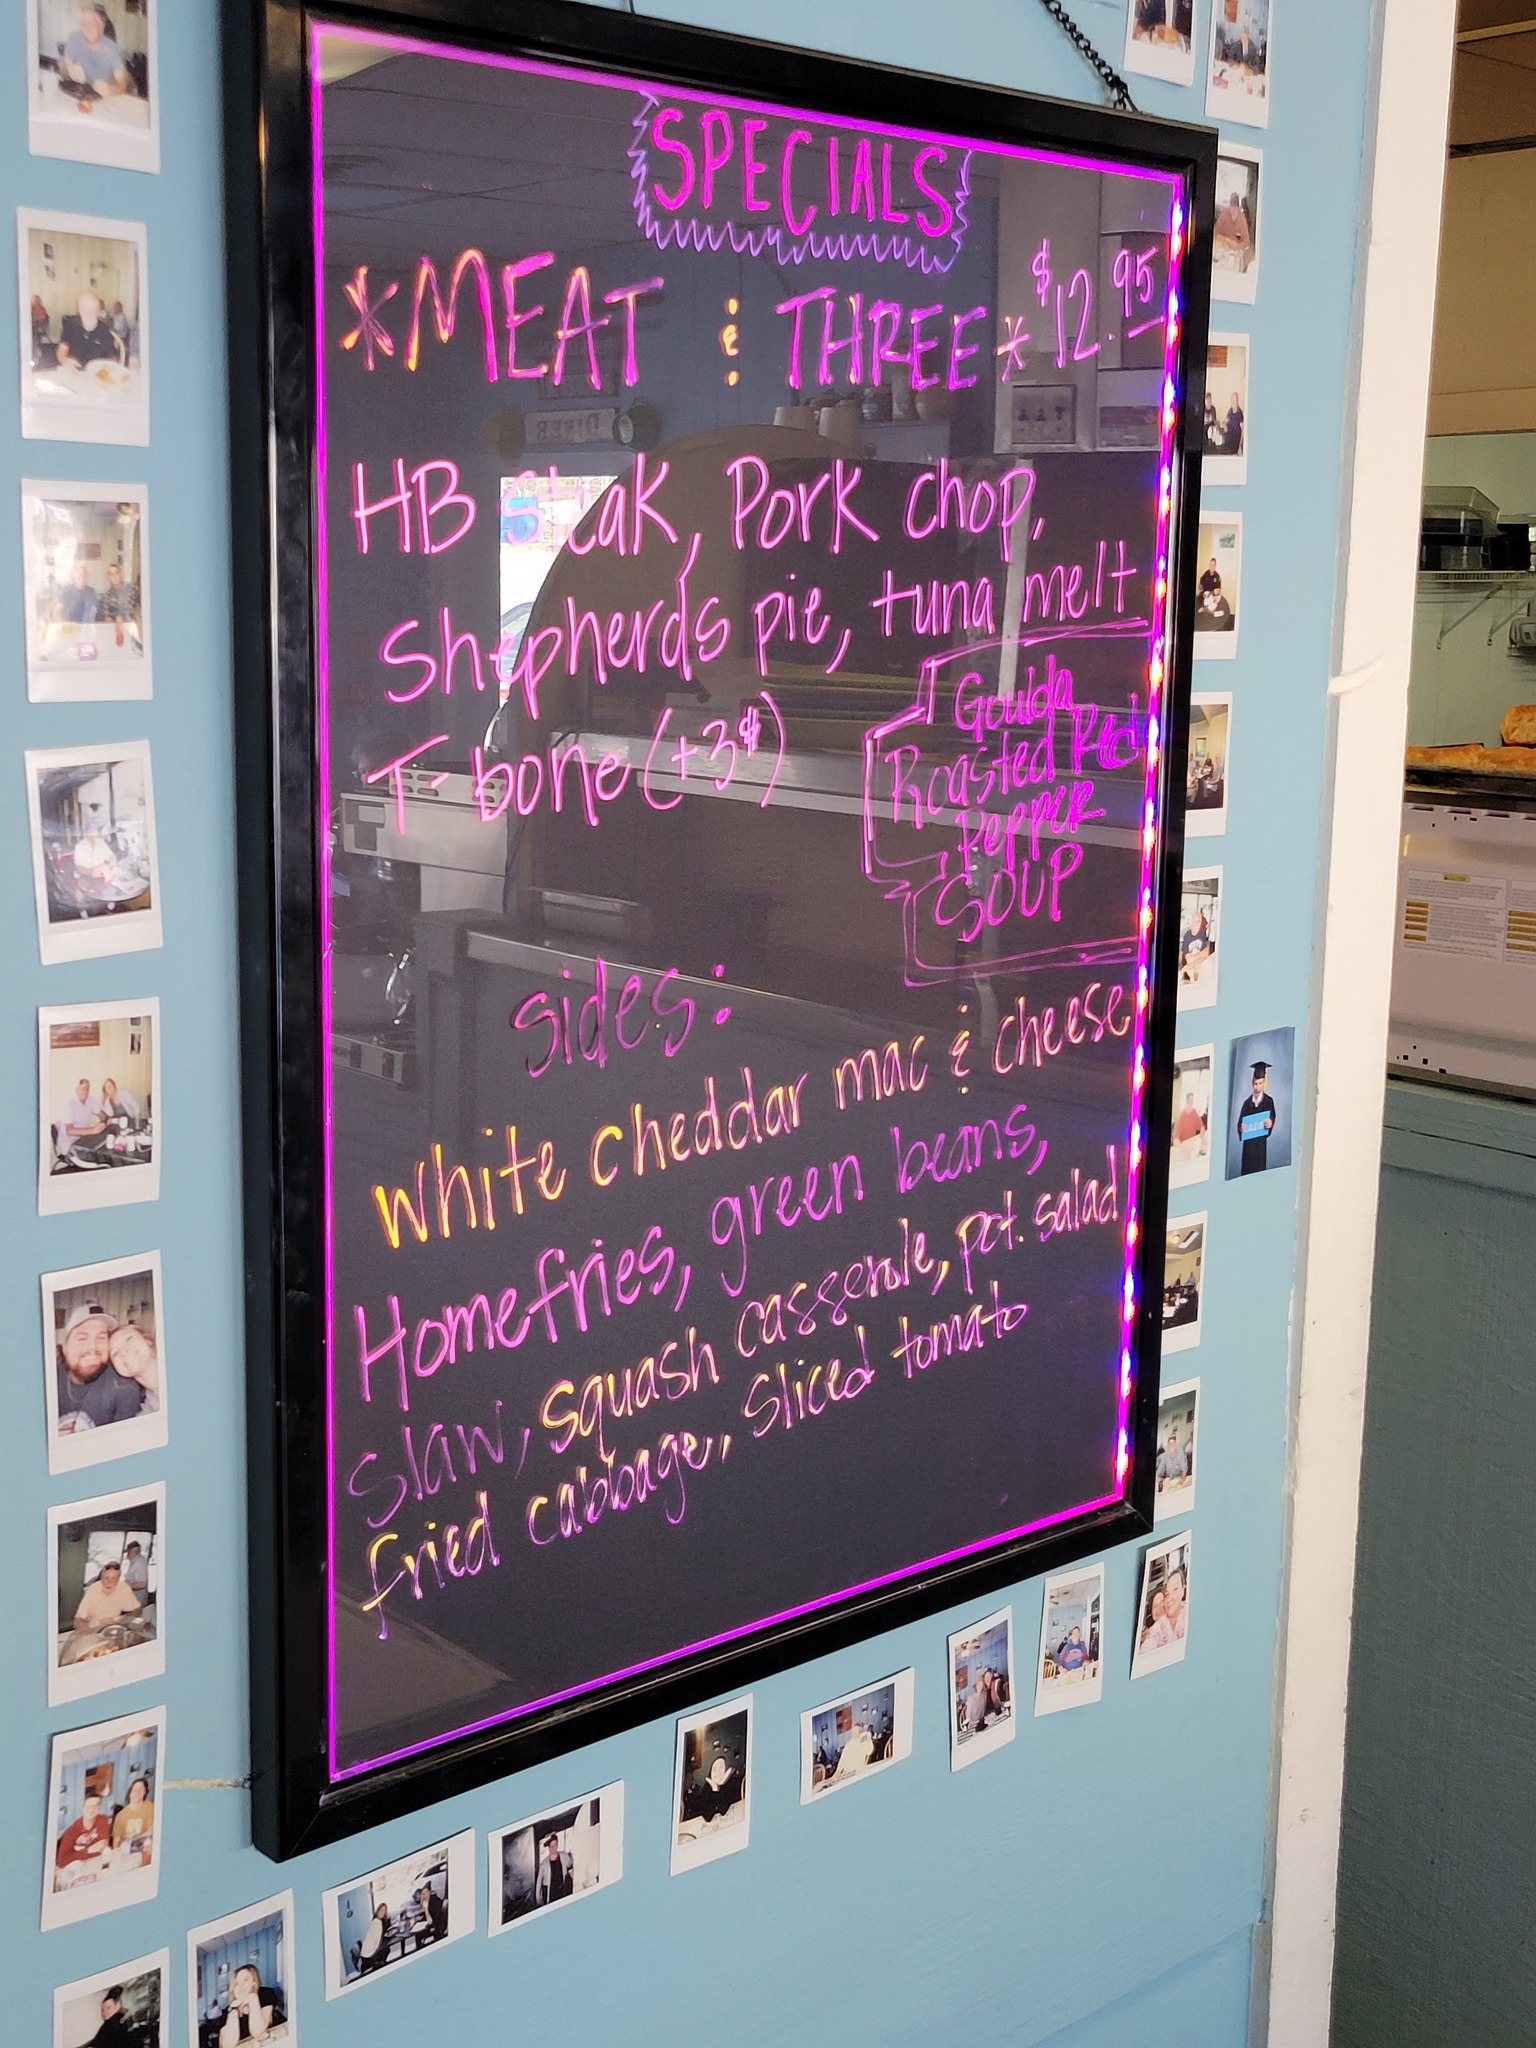 SPECIALS
*MEAT & THREE* $12.95
HB Steak, Pork chop,
Shepherds pie, tuna melt
T-bone (+3$)
Gouda
Roasted Red
Pepper
SOUP
Sides:
White cheddar mac & cheese
Homefries, green beans,
slaw, squash casserole, pot. salad
fried cabbage, sliced tomato